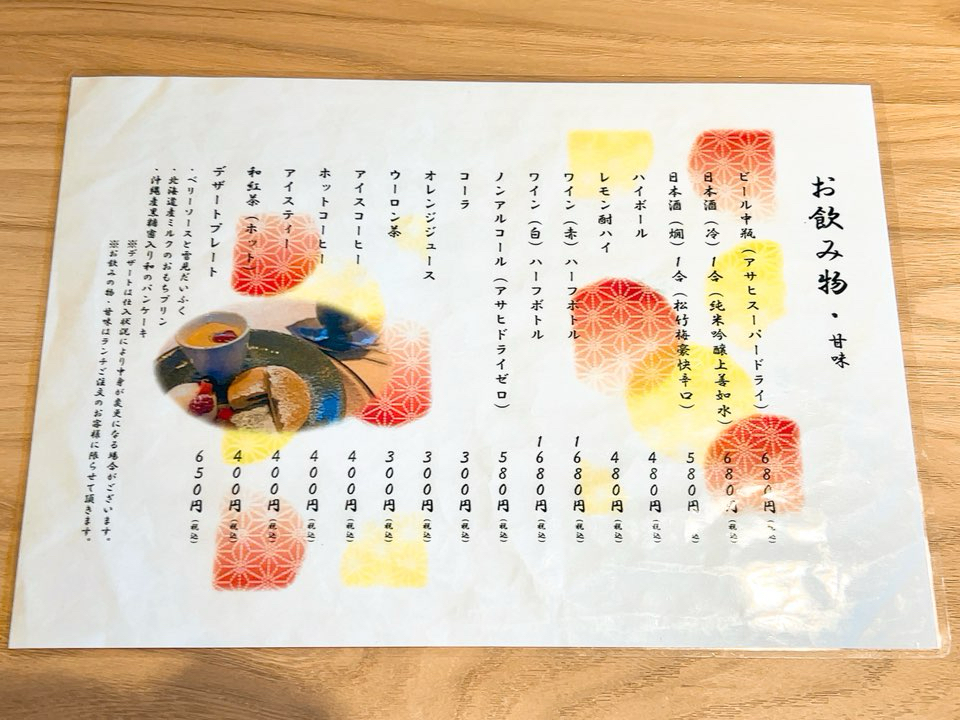 お飲み物・甘味
ビール中瓶（アサヒスーパードライ） 680円（税込）
日本酒（冷）1合（純米吟醸上善如水） 680円（税込）
日本酒（燗）1合（松竹梅豪快辛口） 580円
ハイボール 480円（税込）
レモン酎ハイ 480円（税込）
ワイン（赤）ハーフボトル 1680円（税込）
ワイン（白）ハーフボトル 1680円（税込）
ノンアルコール（アサヒドライゼロ） 580円（税込）
コーラ 300円（税込）
オレンジジュース 300円（税込）
ウーロン茶 300円（税込）
アイスコーヒー 400円（税込）
ホットコーヒー 400円（税込）
アイスティー 400円（税込）
和紅茶（ホット） 400円（税込）
デザートプレート 650円（税込）
・ベリーソースと雪見だいふく
・北海道産ミルクのおもちプリン
・沖縄産黒糖蜜入り和のパンケーキ
※デザートは仕入状況により中身が変更になる場合がございます。
※お飲みの物・甘味はランチご注文のお客様に限らせて頂きます。